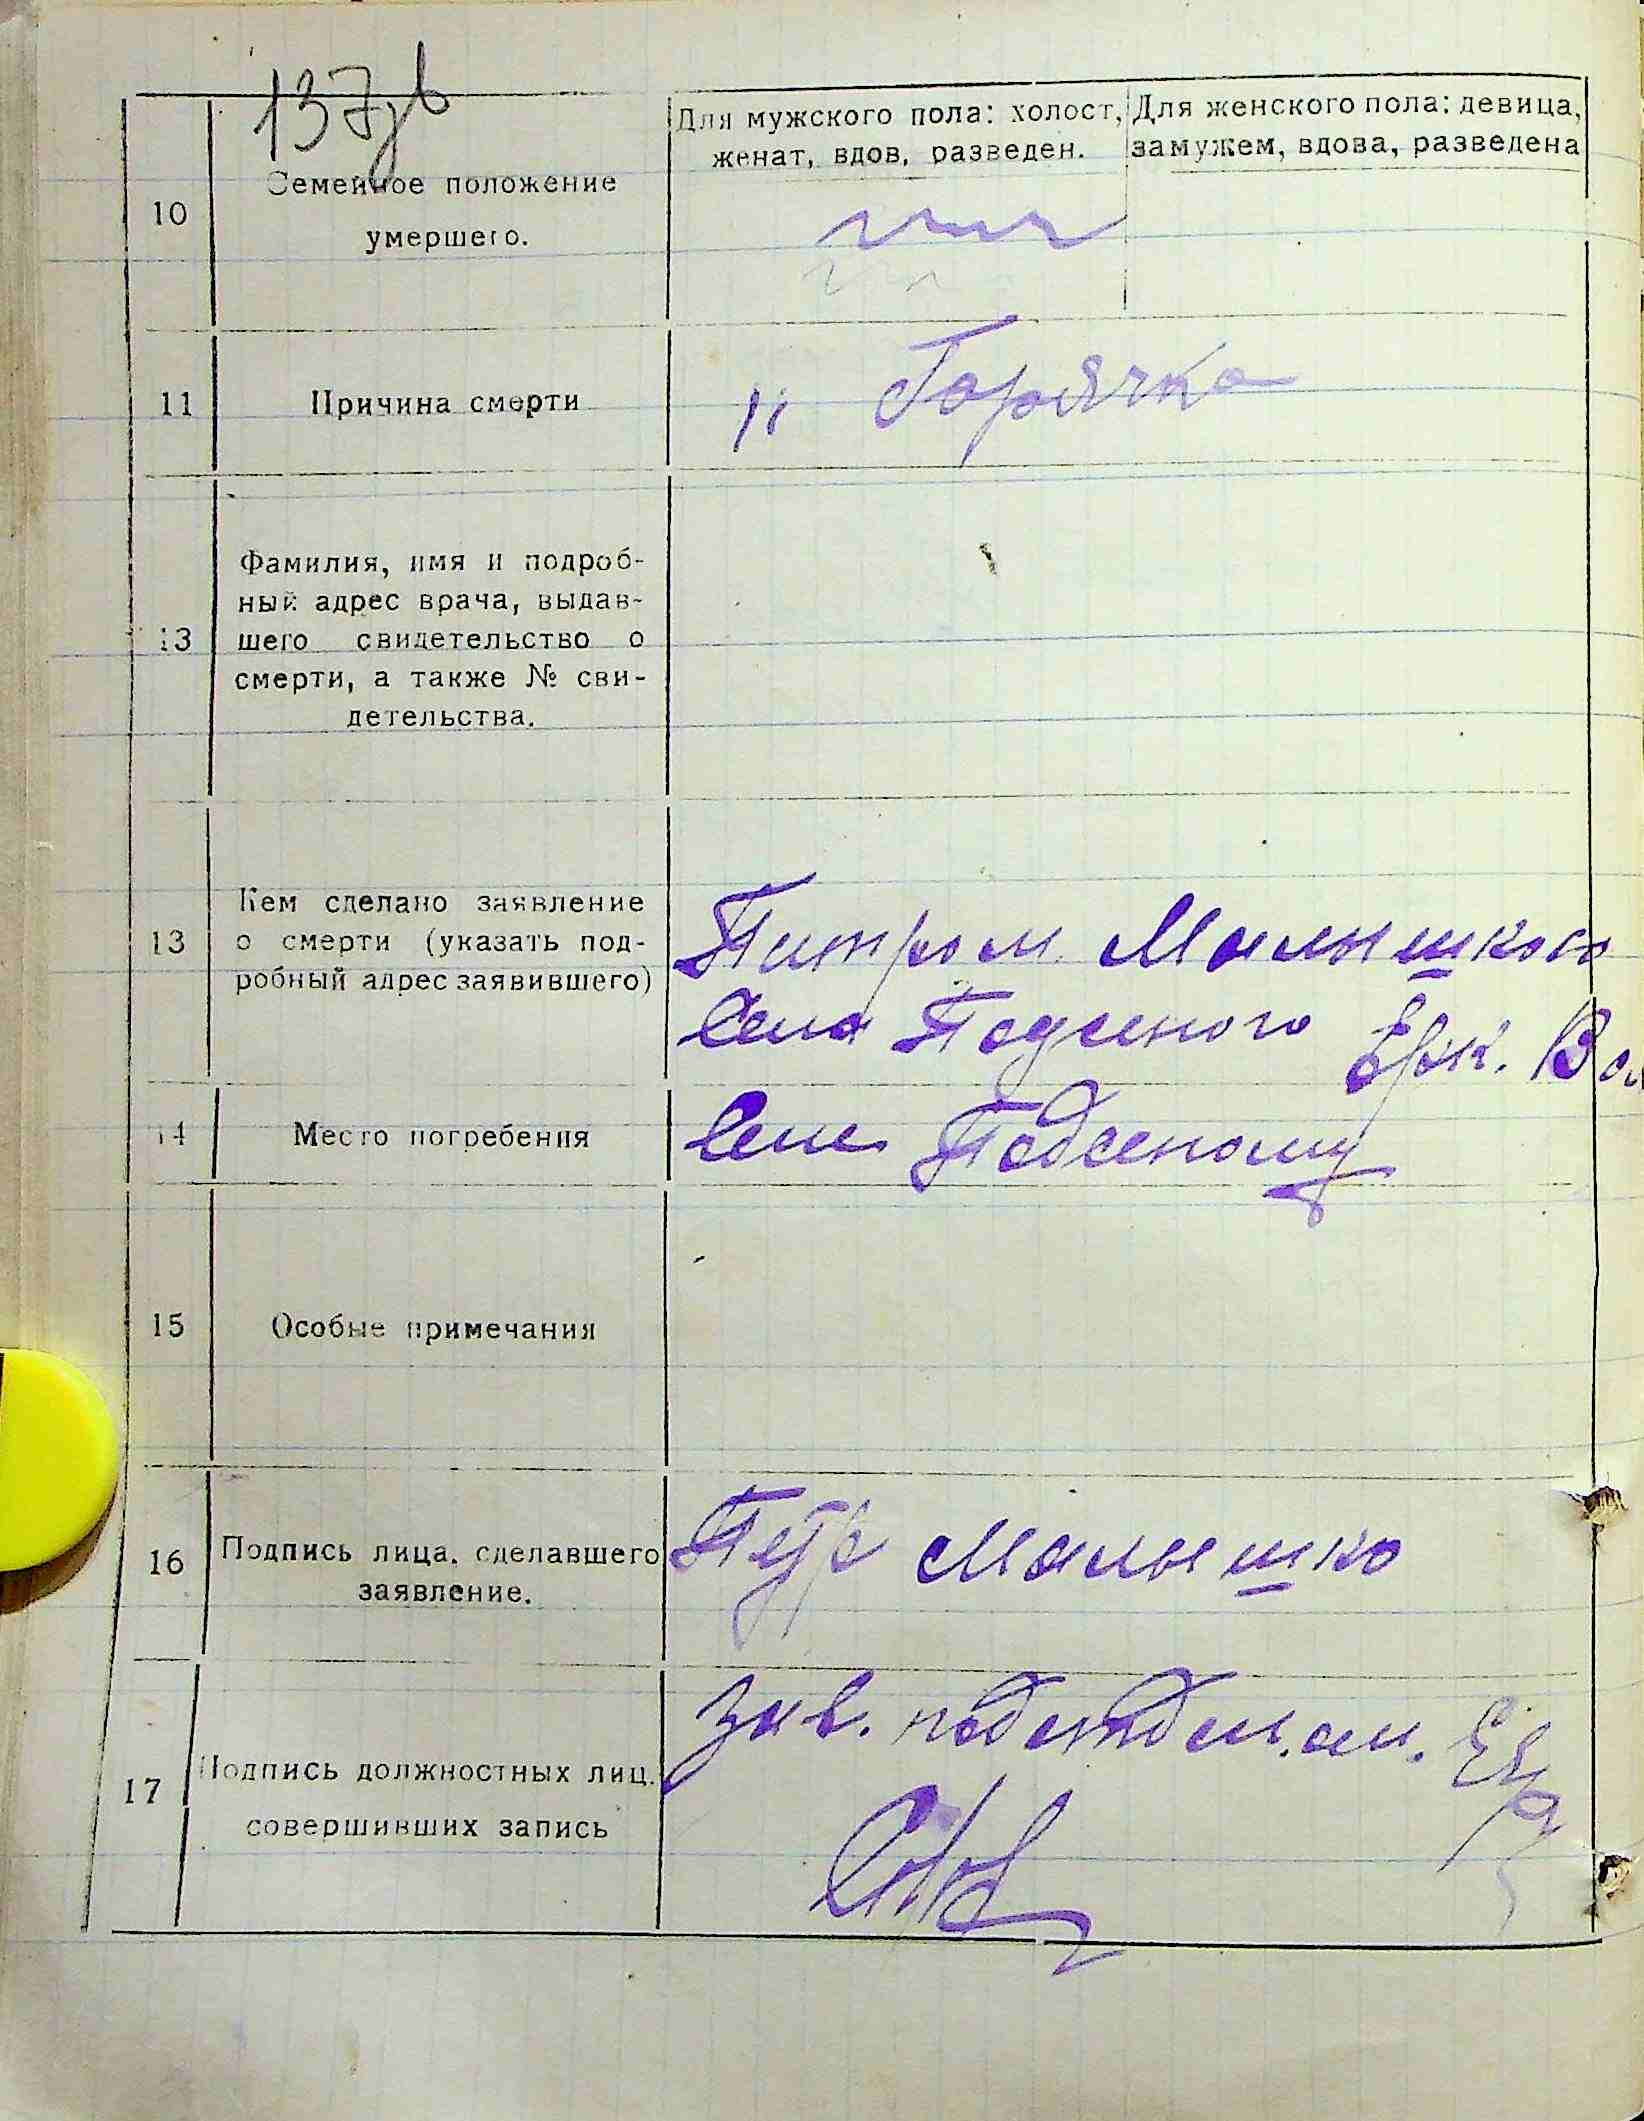 137
Для мужского пола: холост,
женат, вдов, разведен.
Для женского пола: девица,
замужем, вдова, разведена
10
Семейное положение
умершего.
11
Причина смерти
" Горячка
13
Фамилия, имя и подроб-
ный адрес врача, выдав-
шего свидетельство о
смерти, а также № сви-
детельства.
13
Кем сделано заявление
о смерти (указать под-
робный адрес заявившего)
Питром Малышкого
Села Подсного Ерк. Вол
14
Место погребения
Селе Подсеному
15
Особые примечания
16
Подпись лица, сделавшего
заявление.
Петр Малышко
17
Подпись должностных лиц.
совершивших запись
Зав. подотдел.